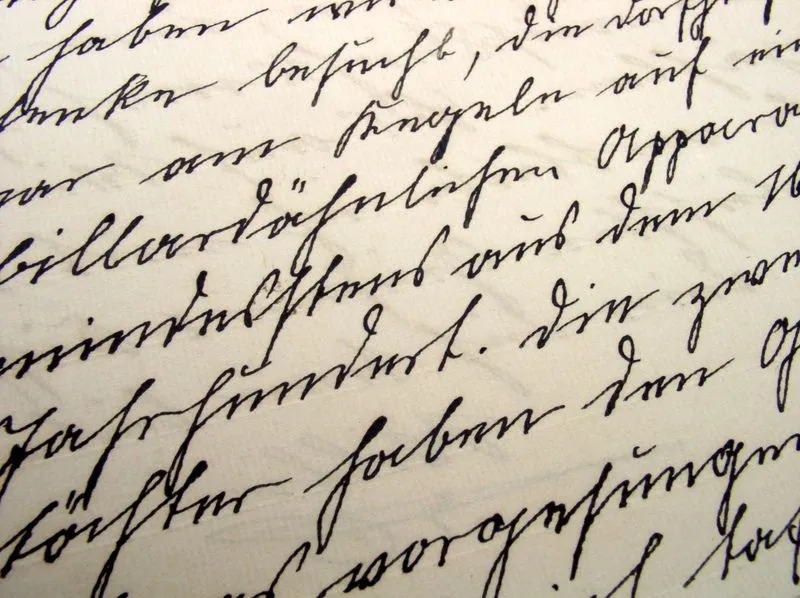 haben wir
besucht, die
war am Kegeln auf ein
billardähnlichen Appara
mindestens aus dem 16
Jahrhundert. Die zwe
töchter haben den G
vorgesungen